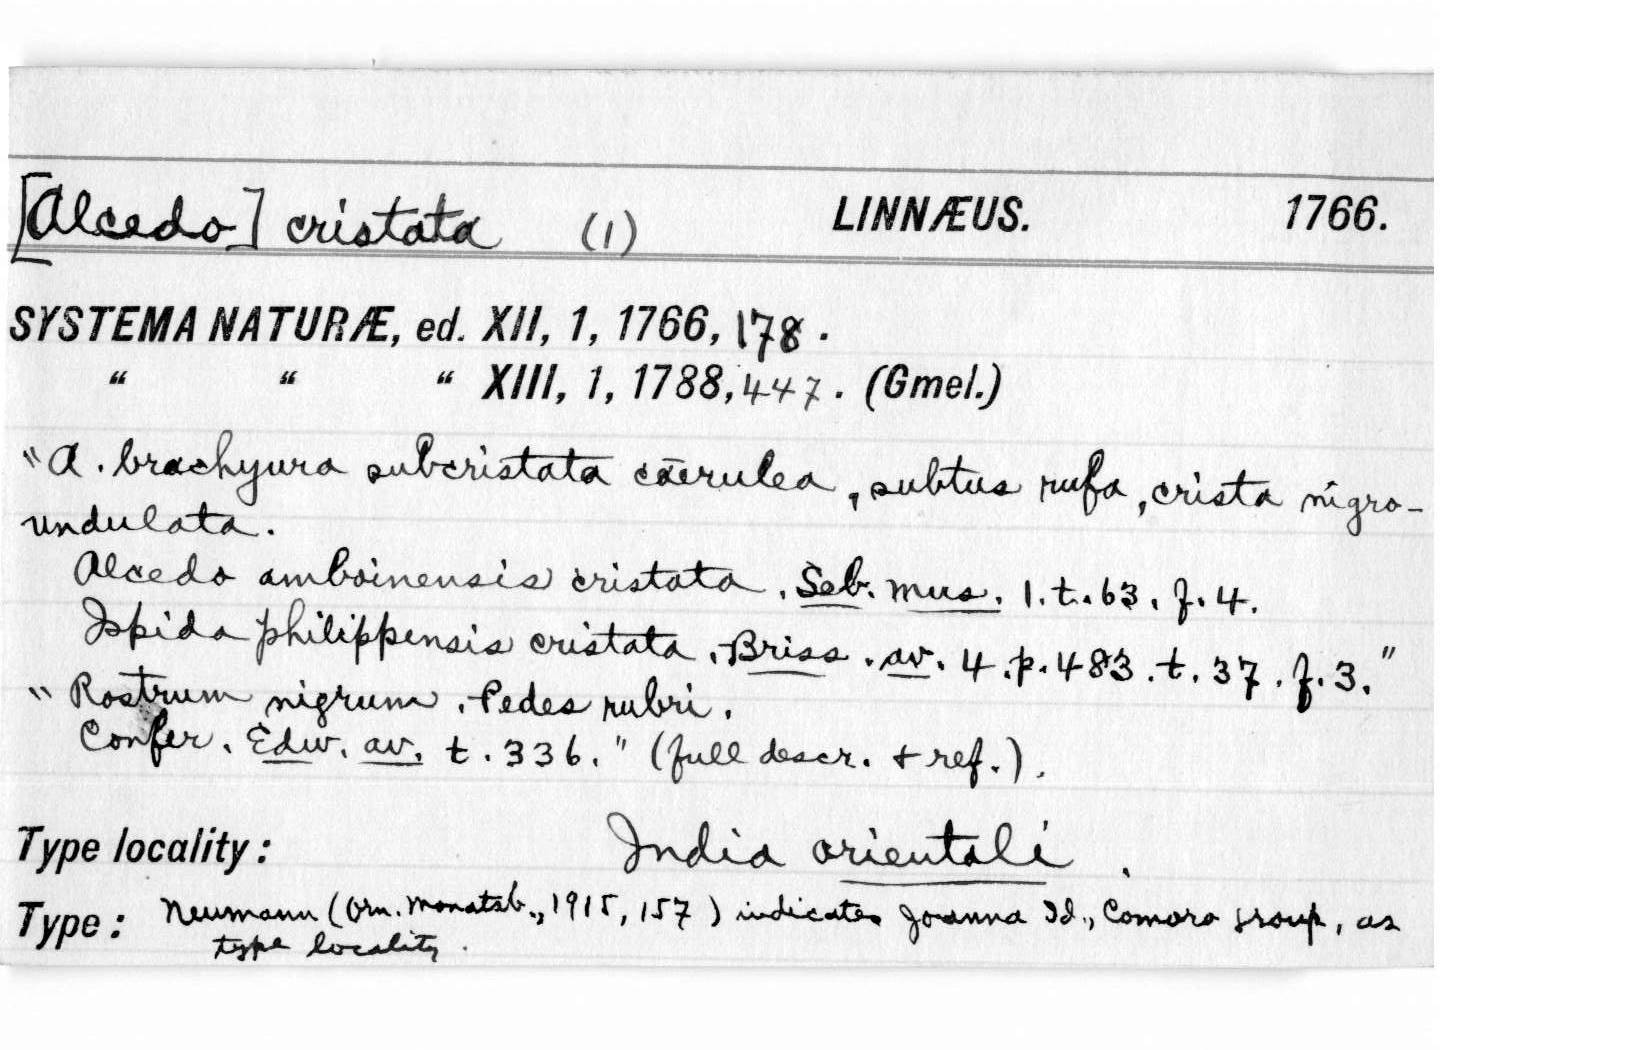 [Alcedo] cristata (1) LINNÆUS. 1766.
SYSTEMA NATURÆ, ed. XII, 1, 1766, 178.
“ “ “ XIII, 1, 1788, 447. (Gmel.)
"A. brachyura subcristata cærulea, subtus rufa, crista nigro-
undulata.
Alcedo amboinensis cristata. Seb. mus. 1. t. 63. f. 4.
Ispida philippensis cristata. Briss. av. 4. p. 483. t. 37. f. 3."
"Rostrum nigrum. Pedes rubri.
Confer. Edw. av. t. 336." (full descr. + ref.).
Type locality: India orientali.
Type: Neumann (Orn. Monatsb., 1915, 157) indicates Joanna Id., Comoro group, as
type locality.